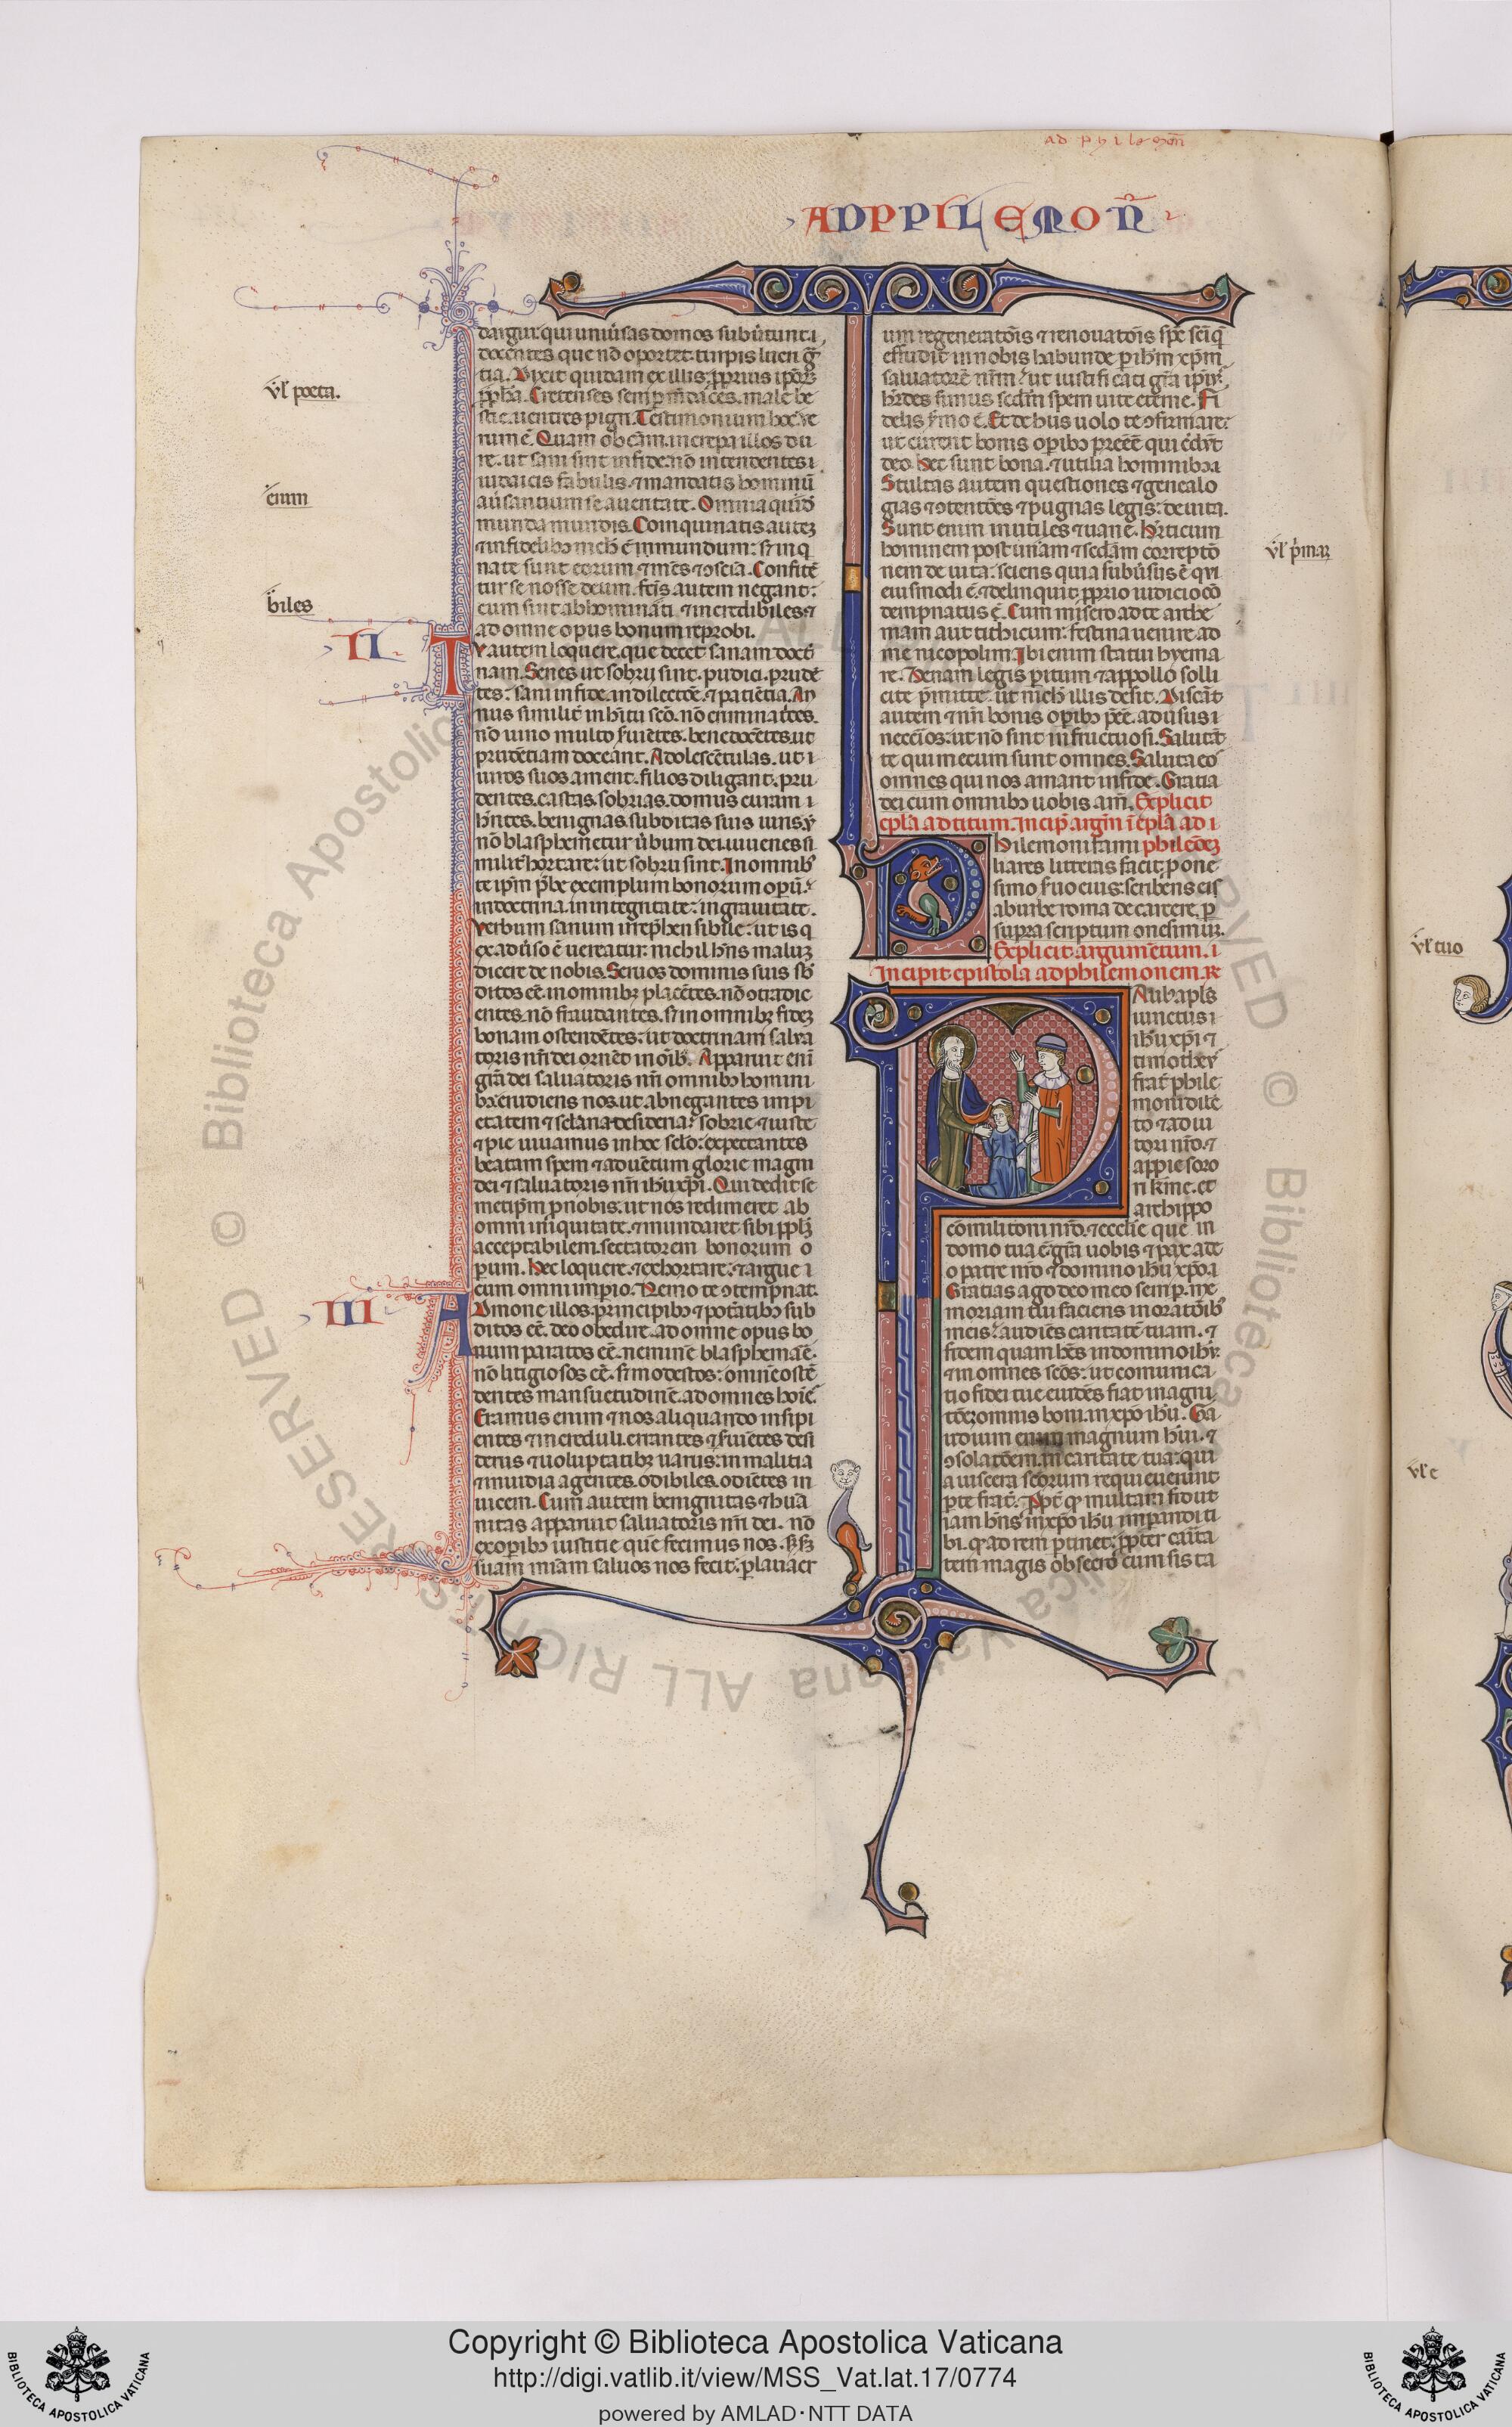 ad philemoñ
AD PPILEMOÑ
darguꝛ. qui uniu̾sas domos subu̾tunt. i
docentes que nō oportet. turpis lucri g̃
tia. Dixit quidam ex illis. ꝓprius ipōꝝ
ꝓph̄a. Cretenses semꝑ m̄daces. male be
stie. uentres pigri. Testimonium hoc ue
rum ē. Quam ob cām. increpa illos du
re. ut sani sint in fide. nō intendentes i
iudaicis fabulis. ⁊ mandatis hominū
au̾santium se a ueritate. Omnia quid̄
munda mundis. Coinquinatis autez
⁊ infidelibꝫ nichil ē immundum: sꝫ inq̄
nate sunt eorum ⁊ mēs ⁊ ↄscīa. Confitēt
tur se nosse deum. fc̄is autem negant:
cum sint abhominati ⁊ incredibiles ⁊
ad omne opus bonum reprobi.
Tv autem loquere. que decet sanam doct̾
nam. Senes ut sobrij sint. pudici. prudē
tes: sani in fide. in dilectōe. ⁊ patiētia. An
nus similit̾ in hītu sc̄o. nō criminatˢces.
nō uino multo ẜuiētes. bene docētes. ut
prudētiam doceant. Adolescētulas. ut i
uiros suos ament. filios diligant. pru
dentes. castas. sobrias. domus curam i
hn̄tes. benignas. subditas suis uiris. ỹ
nō blasphemetur ũbum dei. iuuenes si
milit̾ hortare: ut sobrij sint. In omnibꝫ
te ip̄m p̄be exemplum bonorum opū.
in doctrina. in integritate: in grauitate.
Verbum sanum irrep̄hensibile: ut is q̄
ex adu̾so ē uereatur. nichil hn̄s maluz
dicere de nobis. Seruos dominis suis sb̾
ditos eē. in omnibꝫ placētes. nō ↄtradic
entes. nō fraudantes. sꝫ in omnibꝫ fidez
bonam ostendētes: ut doctrinam salua
toris nr̄i dei ornēt in oīb̾. Apparuit enī
gr̄a dei saluatoris nr̄i omnibꝫ homini
bꝫ. erudiens nos. ut abnegantes impi
etatem ⁊ sclaria desideria: sobrie ⁊ iuste
⁊ pie uiuamus in hoc sclo: expectantes
beatam spem ⁊ aduētum glorie magni
dei ⁊ saluatoris nr̄i ih̄u xp̄i. Qui dedit se
metip̄m ꝓ nobis. ut nos redimeret ab
omni iniquitate. ⁊ mundaret sibi ppl̄ꝫ
acceptabilem. sectatorem bonorum o
perum. Hec loquere. ⁊ exhortare: ⁊ argue i
cum omni impio. Nemo te ↄtempnat.
Admone illos. principibꝫ ⁊ potatibꝫ sub
ditos eē. deo obedire. ad omne opus bo
num paratos eē. neminē blasphemāē.
nō litigiosos eē. sꝫ modestos: omnē ostē
dentes mansuetudinē. ad omnes hoīēs.
Eramus enim ⁊ nos aliquando insipi
entes ⁊ increduli. errantes ⁊ ẜuiētes desi
deriis ⁊ uoluptatibꝫ uariis: in malitia
⁊ inuidia agentes. odibiles. odiētes in
uicem. Cum autem benignitas ⁊ huā
nitas apparuit saluatoris nr̄i dei. nō
ex opibꝫ iustitie que fecimus nos. sꝫ sꝫ
suam miam saluos nos fecit: ꝑ lauacr
ul̄ poeta.
enim
biles
II
III
um regeneratōis ⁊ renouatōis sp̄c sc̄i. q̄
effudit in nobis habunde ꝑ ih̄m xp̄m
saluatorē nr̄m: ut iustificati gr̄a ipiꝰ:
h̾edes simus scd̄m spem uite et̾ne. Fi
delis ẜmo ē. Et de hiis uolo te ↄfirmare:
ut curent bonis opibꝫ preēē qui cred̄t
deo. Hec sunt bona. ⁊ utilia hominibꝫ. i
Stultas autem questiones ⁊ genealo
gias ⁊ ↄtentōes ⁊ pugnas legis: deuita.
Sunt enim inutiles ⁊ uane. H̾eticum
hominem post unam ⁊ scdam correptō
nem deuita: sciens quia subu̾sus ē qui
eiusmodi ē. ⁊ delinquit. ꝓprio iudicio cō
dempnatus ē. Cum misero ad te arthe
mam aut tithicum: festina uenire ad
me nicopolim. Ibi enim statui hyema
re. Zenam legis peritum ⁊ appollo solli
cite p̄mitte. ut nichil illis desit. Discāt
autem ⁊ nr̄i bonis opibꝫ p̄eē. ad usus i
necc̄ios: ut nō sint infructuosi. Salutāt
te qui mecum sunt omnes. Saluta eos
omnes qui nos amant in fide. Gratia
dei cum omnibꝫ uobis am̄. Explicit
epl̄a ad titum. Incip̄ argm̄ i epl̄a ad i
Philemoni fami philemōez
liares litteras facit ꝓ one
simo ẜuo eius: scribens eis
ab urbe roma de carcere. ꝑ
supra scriptum onesimuz.
Explicit argumētum. i
Incipit epistola ad philemonem. Re
Aulꝰ apl̄s
uinctus i
ih̄u xp̄i ⁊
timothey
frat̾ phile
moni dile
to ⁊ adiu
tori nr̄o. ⁊
appie soro
ri kīme. et
archippo
cōmilitoni nr̄o. ⁊ ecclīe que in
domo tua ē. gr̄a uobis ⁊ pax a de
o patre nr̄o ⁊ domino ih̄u xp̄o. i
Gratias ago deo meo semꝑ. me
moriam tui faciens in oratōib̾
meis: audiēs caritatē tuam. ⁊
fidem quam hēs in domino ih̄u:
⁊ in omnes scōs: ut comunica
tio fidei tue. euidēs fiat in agni
tōe omnis boni. in xp̄o ih̄u. Ga
udium enim magnum hui. ⁊
ↄsolatōem in caritate tua: qui
a uiscera scōrum requieuerunt
ꝑ te frat̾. Ppt̾ qd̾ multam fidut
iam hn̄s in xp̄o ih̄u impandi ti
bi. qd̾ ad rem ꝑtinet: ꝓpter carita
tem magis obsecro. cum sis ta
ul̄ p̄mam
ul̄ tuo
ul̄ e
Copyright © Biblioteca Apostolica Vaticana
http://digi.vatlib.it/view/MSS_Vat.lat.17/0774
powered by AMLAD·NTT DATA
BIBLIOTECA APOSTOLICA VATICANA
BIBLIOTECA APOSTOLICA VATICANA
© Biblioteca Apostolica Vaticana ALL RIGHTS RESERVED
© Biblioteca Apostolica Vaticana ALL RIGHTS RESERVED